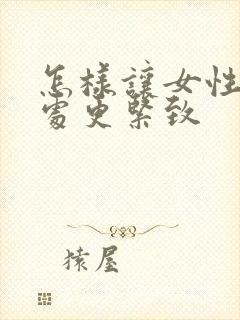 怎樣讓女性
處更緊致
猿屋